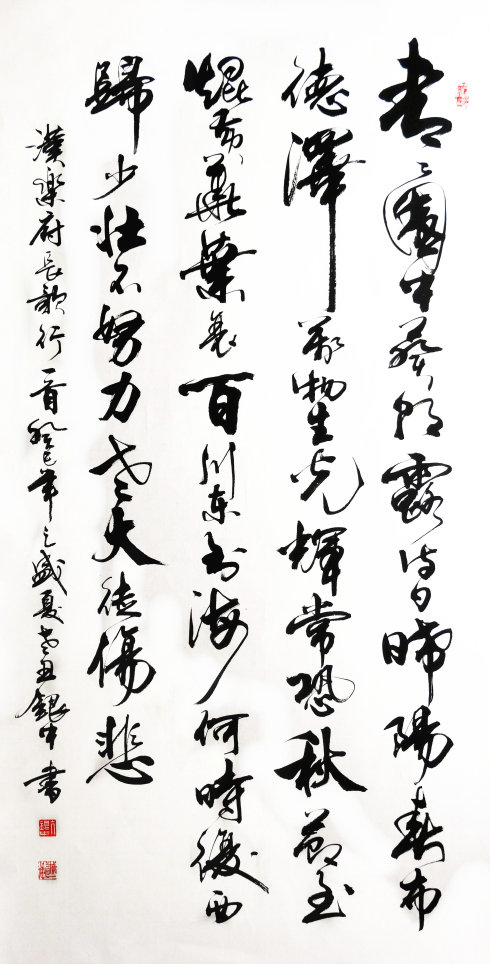 青々園中葵朝露待日晞陽春布
德澤萬物生光輝常恐秋節至
焜黃華葉衰百川東到海何時復西
歸少壯不努力老大徒傷悲
漢樂府長歌行一首癸巳年之盛夏老丑銀中書